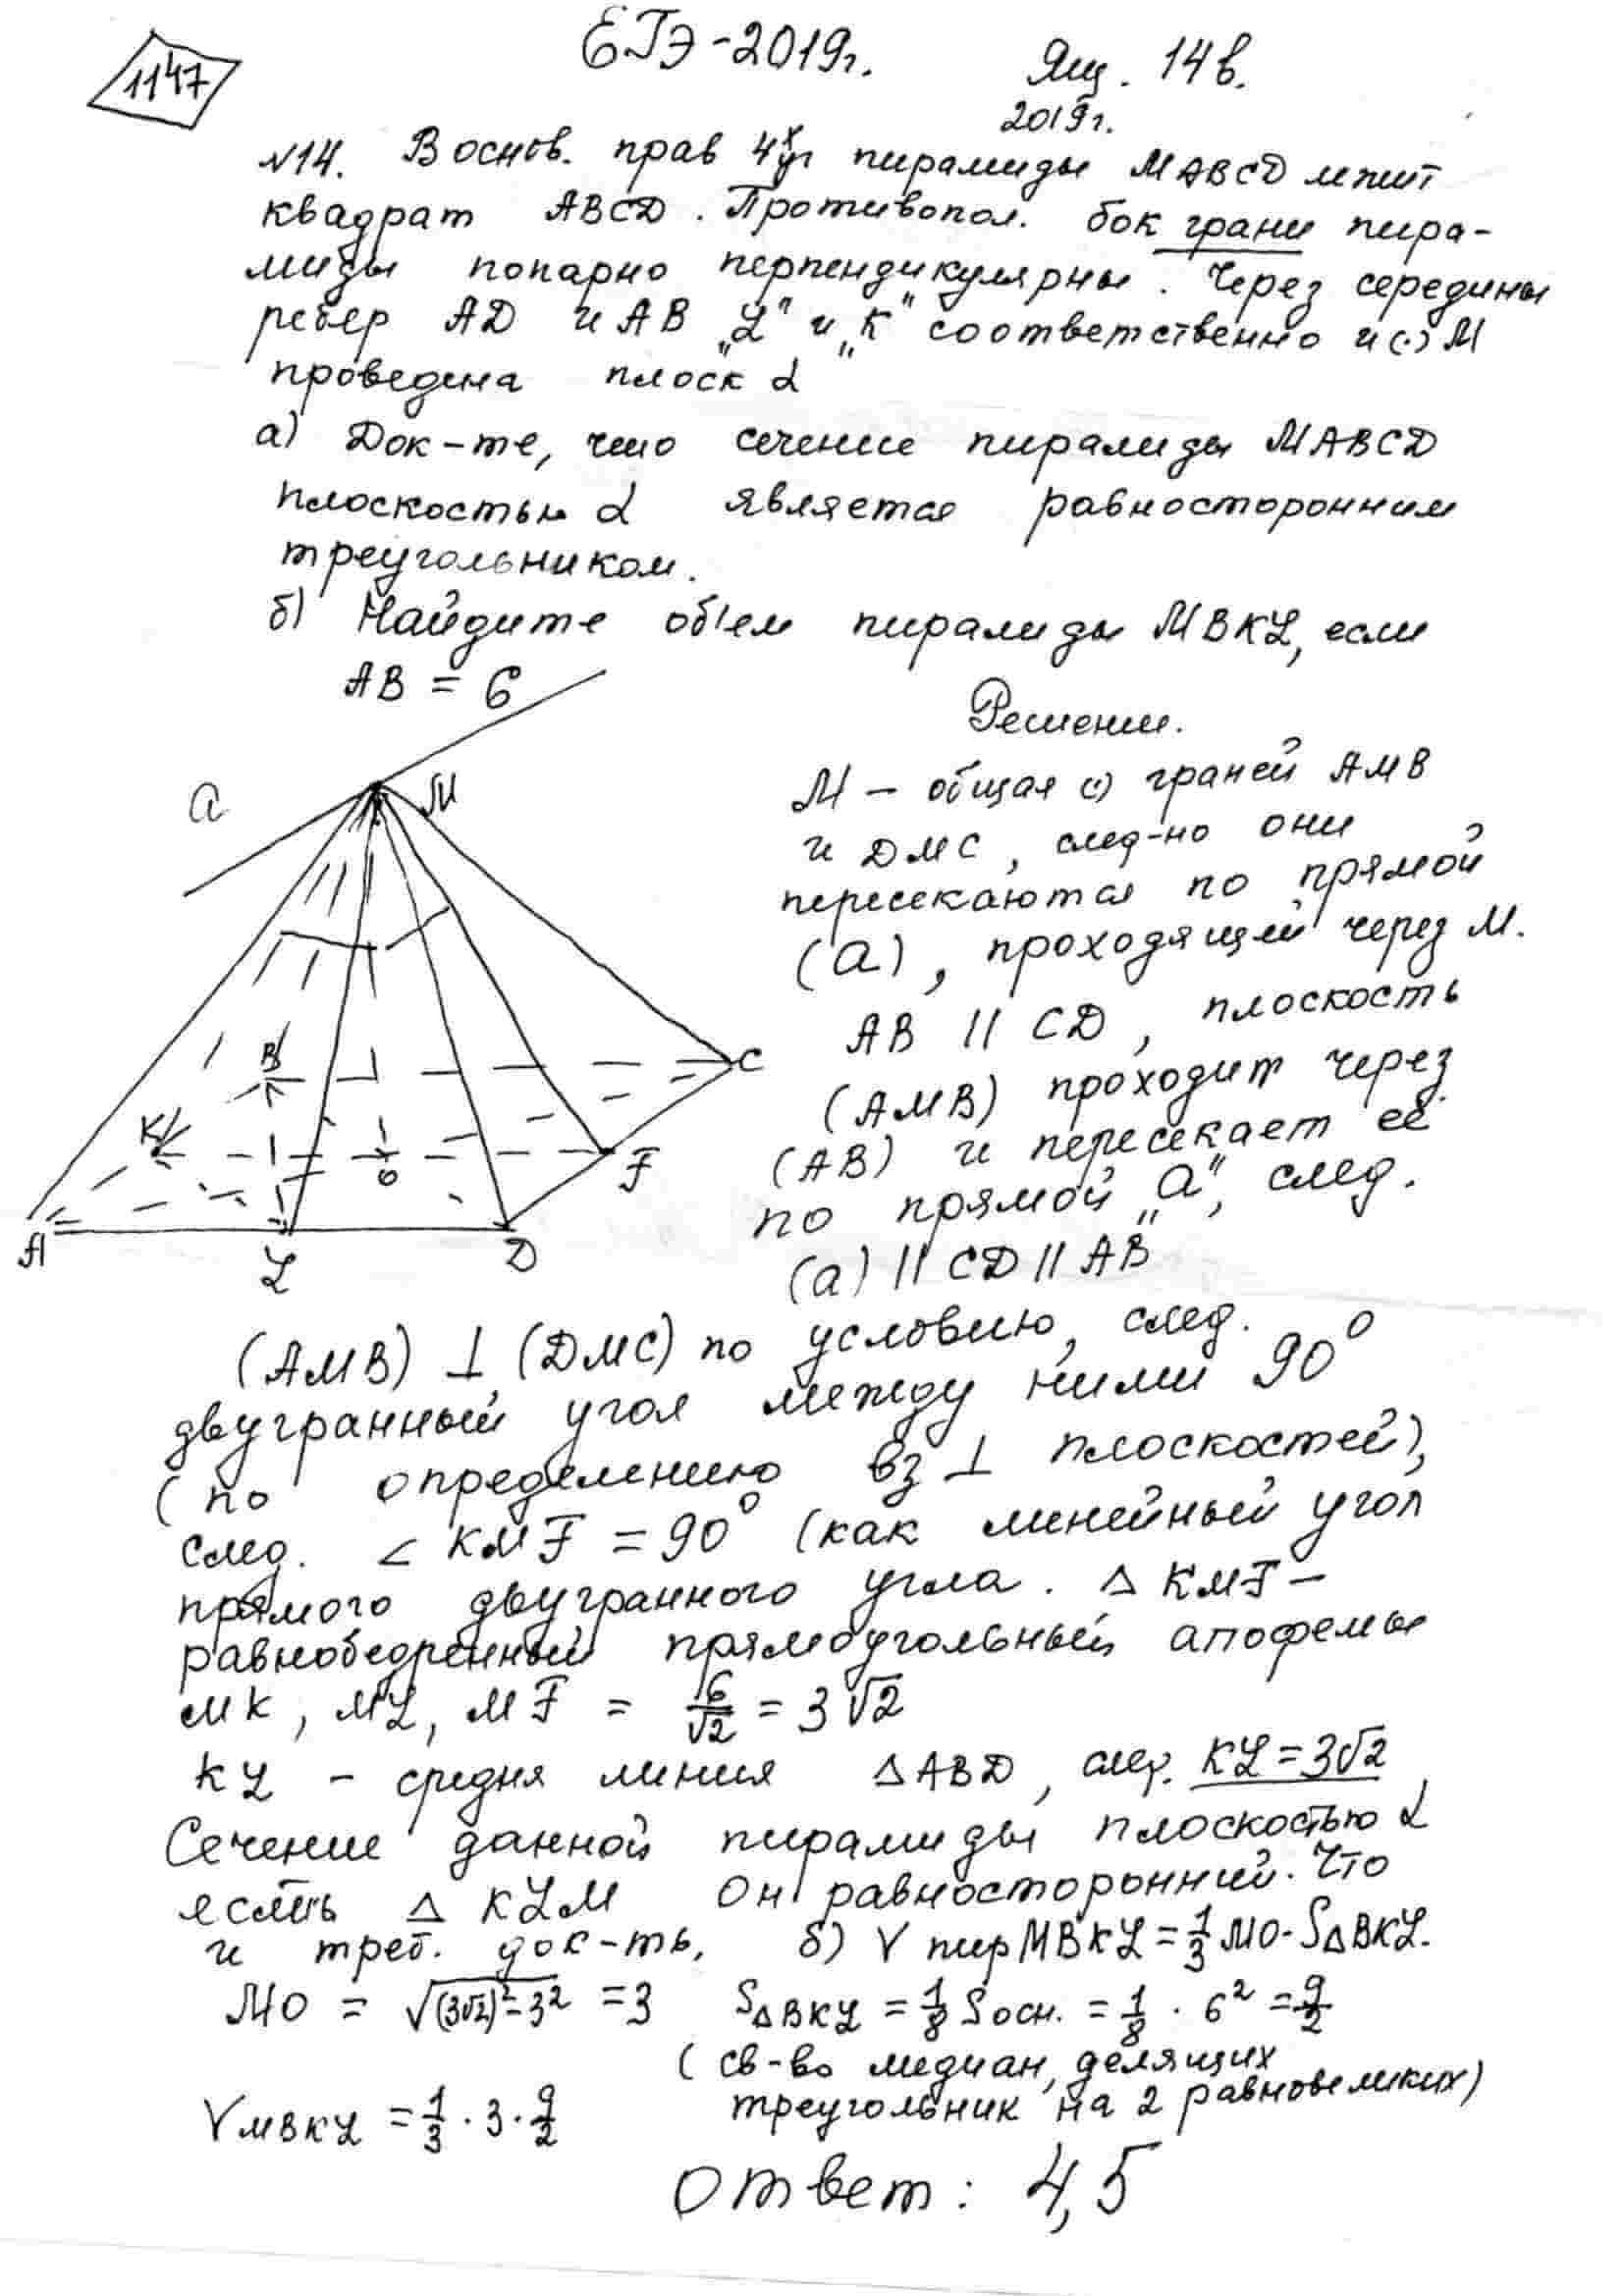 1147
ЕГЭ-2019г.
Ящ. 14в.
2019г.
№14. В основ. прав 4х уг пирамиды MABCD лежит
квадрат ABCD. Противопол. бок грани пира-
миды попарно перпендикулярны. Через середины
ребер AD и AB „L" и „K" соответственно и (·) M
проведена плоск α
а) Док-те, что сечение пирамиды MABCD
плоскостью α является равносторонним
треугольником.
б) Найдите об'ем пирамиды MBKL, если
AB = 6
Решение.
M – общая (·) граней AMB
и DMC, след-но они
пересекаются по прямой
(a), проходящей через M.
AB || CD, плоскость
(AMB) проходит через
(AB) и пересекает её
по прямой „a", след.
(a) || CD || AB
a
M
B
C
K
O
F
A
L
D
(AMB) ⊥ (DMC) по условию, след.
двугранный угол между ними 90°
(по определению вз ⊥ плоскостей),
след. ∠ KMF = 90° (как линейный угол
прямого двугранного угла. Δ KMF –
равнобедренный прямоугольный, апофемы
MK, ML, MF = 6/√2 = 3√2
KL – средня линия ΔABD, след. KL = 3√2,
Сечение данной пирамиды плоскостью α
есть Δ KLM Он равносторонний. Что
и треб. док-ть,
б) V пир MBKL = 1/3 MO · SΔBKL.
MO = √((3√2)² – 3²) = 3
SΔBKL = 1/8 Sосн. = 1/8 · 6² = 9/2
(св-во медиан, делящих
треугольник на 2 равновеликих)
VMBKL = 1/3 · 3 · 9/2
Ответ: 4,5